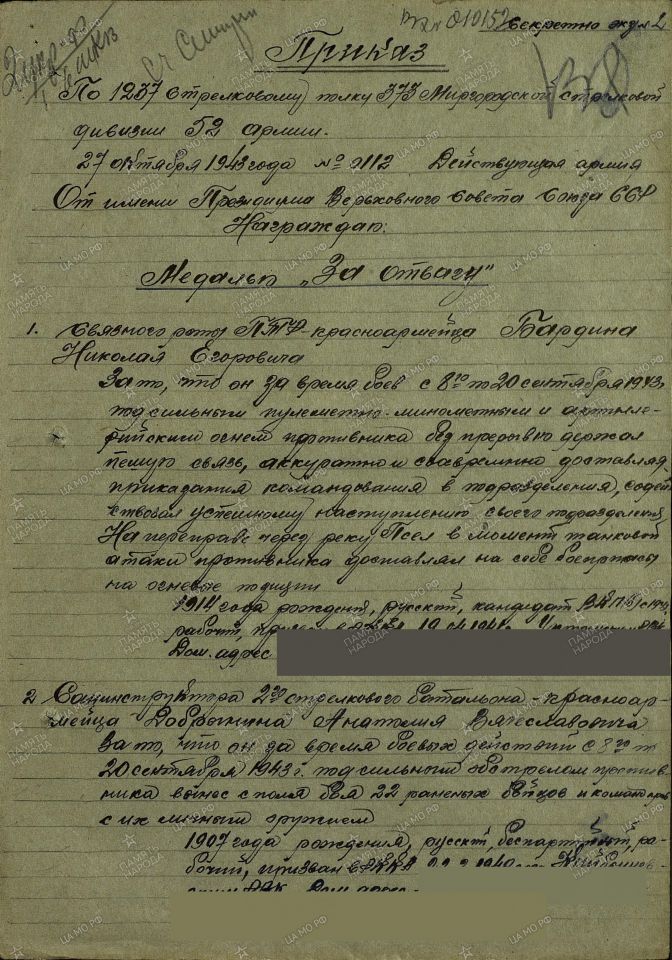 010152 Секретно экз 2
Приказ
По 1237 Стрелковому полку 373 Миргородской стрелковой
дивизии 52 армии.
27 октября 1943 года № 0112 Действующая армия
От имени Президиума Верховного Совета Союза ССР
Награждаю:
Медалью „За отвагу"
1. Связного роты ПТР - красноармейца Бардина
Николая Егоровича
За то, что он за время боев с 8го по 20 сентября 1943
под сильным пулеметно-минометным и артилле-
рийским огнем противника без прерывно держал
пешую связь, аккуратно и своевременно доставлял
приказания командования в подразделения, содей
ствовал успешному наступлению своего подразделения
На переправе через реку Псел в момент танковой
атаки противника доставлял на себе боеприпасы
на огневые позиции
1914 года рождения, русский, кандидат ВКП(б) с
рабочий, призван в
Дом. адрес
2 Санинструктора 2го стрелкового батальона - красноар-
мейца Добрынина Анатолия Вячеславовича
За то, что он за время боевых действий с 8го по
20 сентября 1943г. под сильным обстрелом против-
ника вынес с поля боя 22 раненых бойцов и командиров
с их личным оружием
1907 года рождения, русский, беспартийный, ра-
бочий, призван в РККА
РВК Дом. адрес